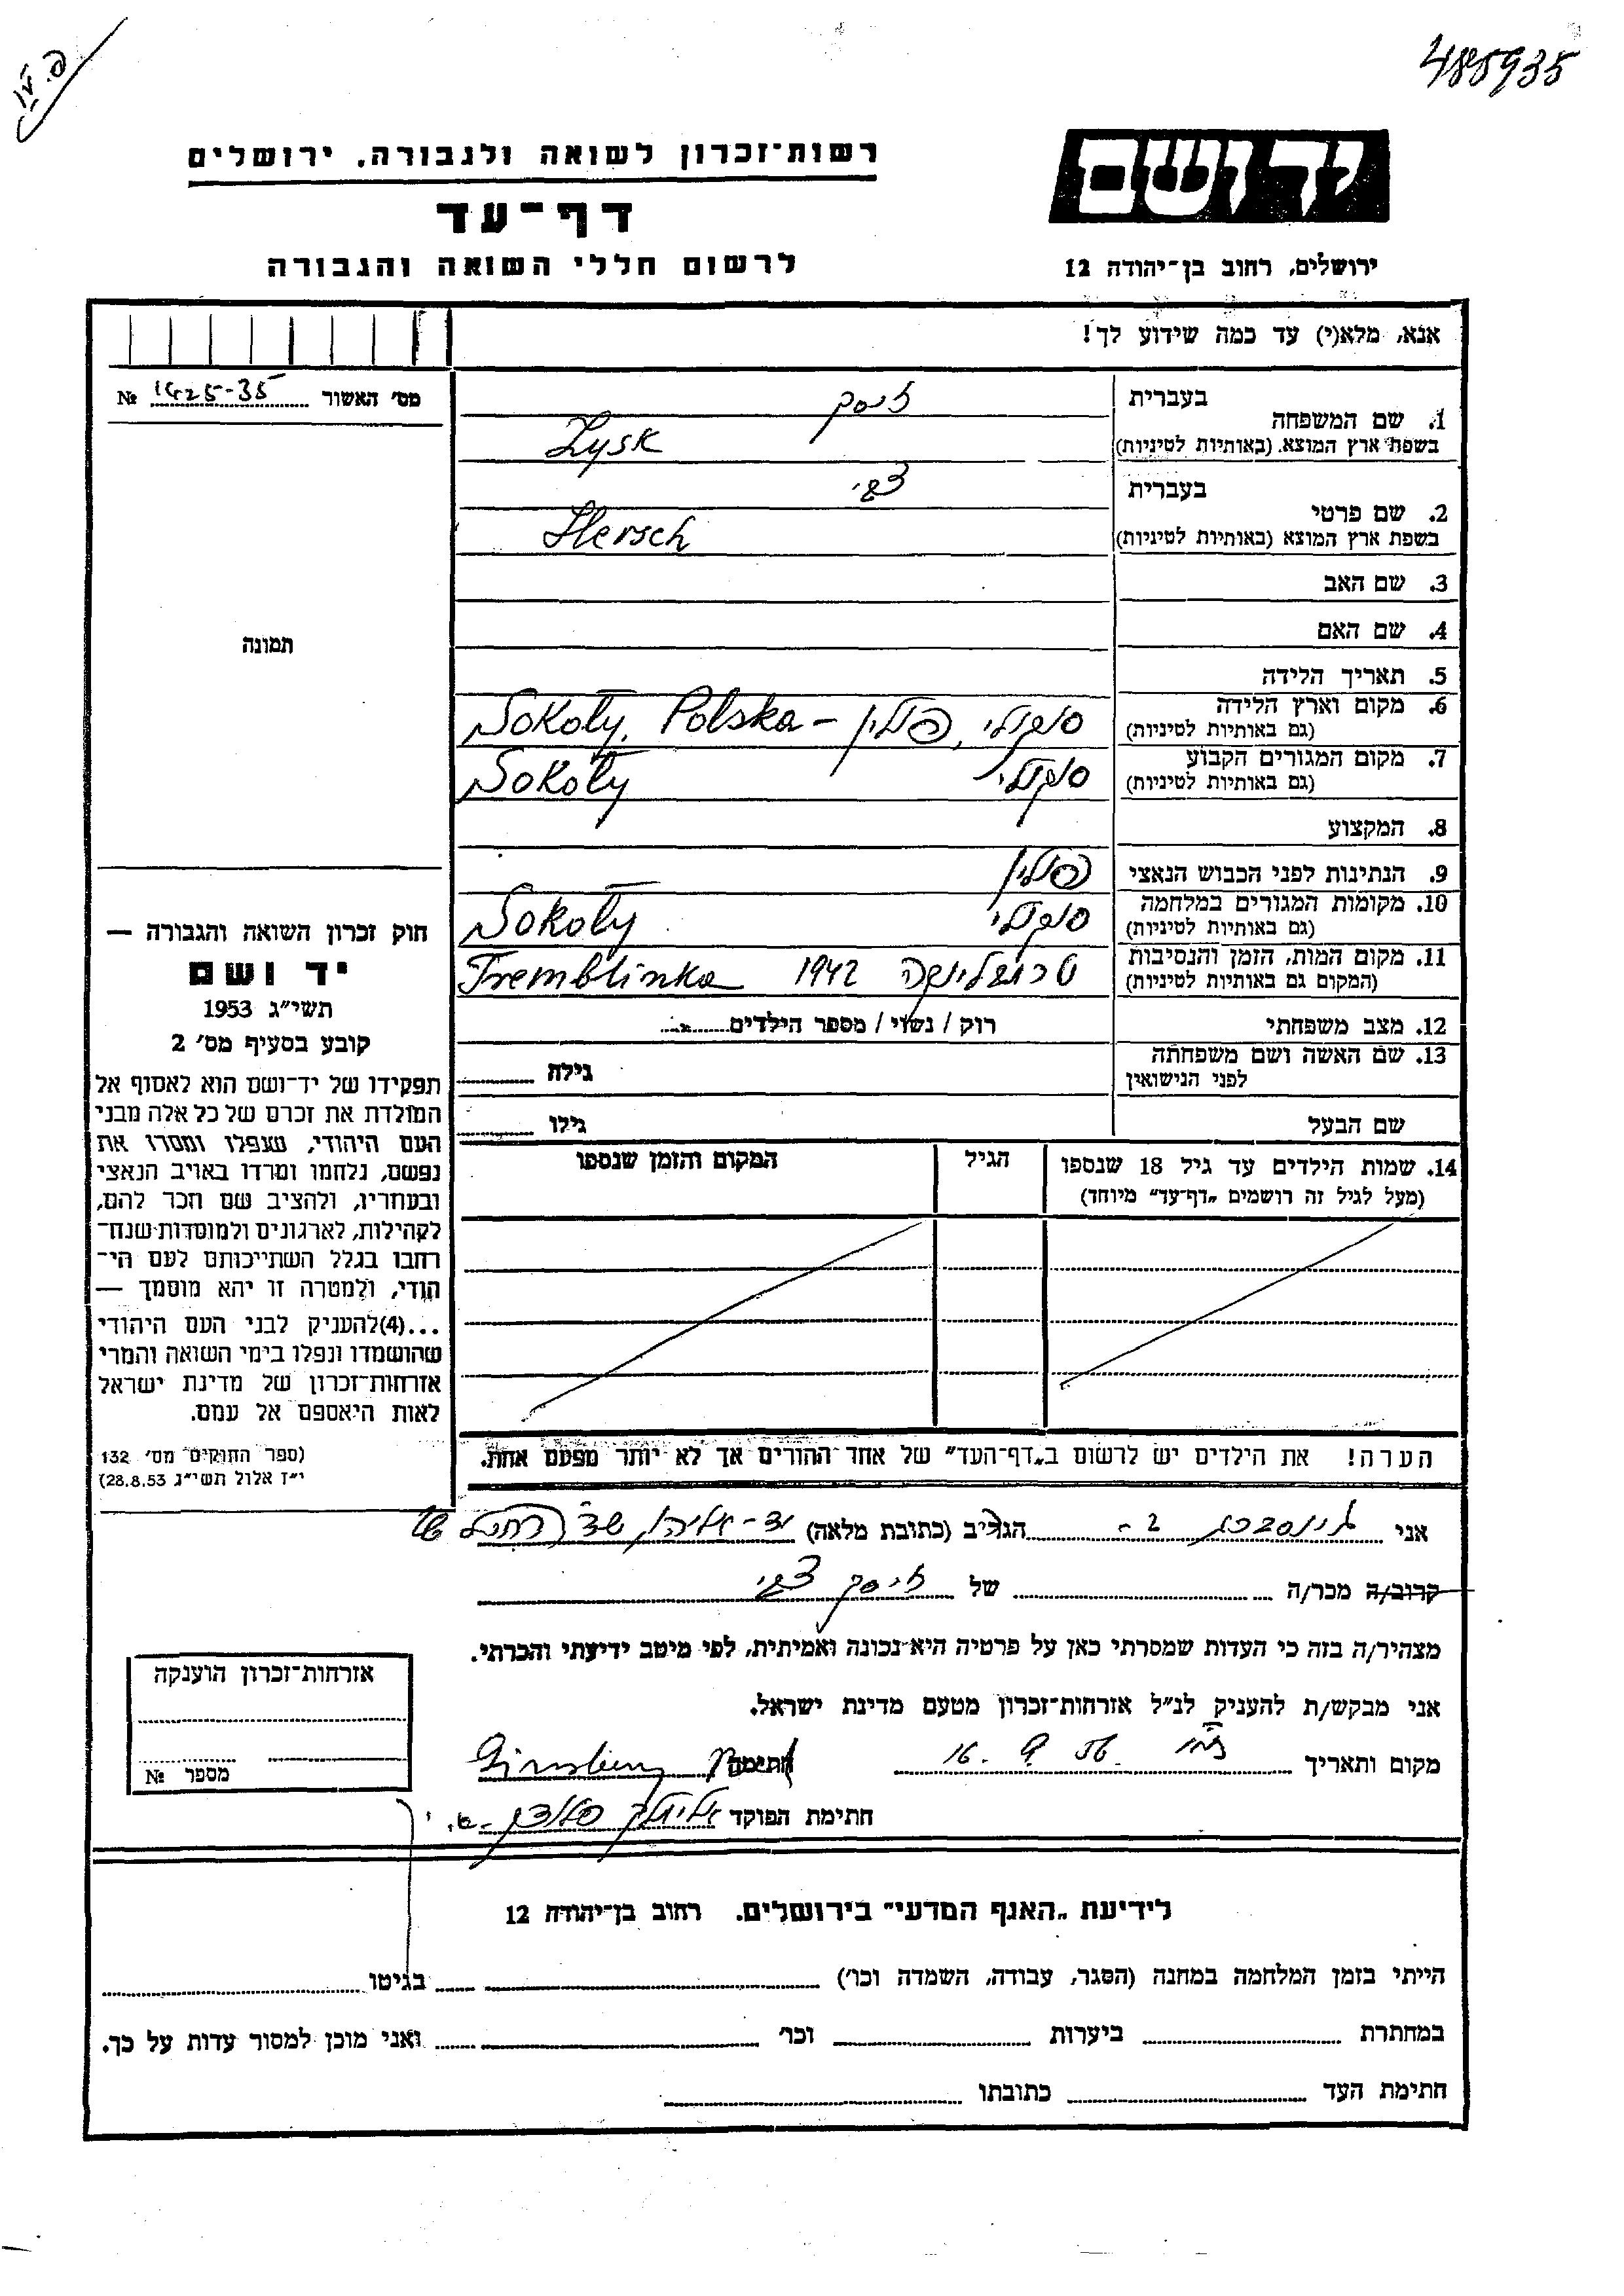 485935
יד ושם
ירושלים, רחוב בן־יהודה 12
רשות־זכרון לשואה ולגבורה, ירושלים
דף־עד
לרשום חללי השואה והגבורה
אנא, מלא(י) עד כמה שידוע לך!
מס׳ האשור 1425-35 №
תמונה
1. שם המשפחה
בעברית זיסק
בשפת ארץ המוצא. (באותיות לטיניות) Zysk
2. שם פרטי
בעברית צבי
בשפת ארץ המוצא (באותיות לטיניות) Hersch
3. שם האב
4. שם האם
5. תאריך הלידה
6. מקום וארץ הלידה
(גם באותיות לטיניות) סוקולי, פולין – Sokoły, Polska
7. מקום המגורים הקבוע
(גם באותיות לטיניות) סוקולי Sokoły
8. המקצוע
9. הנתינות לפני הכבוש הנאצי פולין
10. מקומות המגורים במלחמה
(גם באותיות לטיניות) סוקולי Sokoły
11. מקום המות, הזמן והנסיבות
(המקום גם באותיות לטיניות) טרמבלינקה 1942 Tremblinka
12. מצב משפחתי רוק / נשוי / מספר הילדים
13. שם האשה ושם משפחתה
לפני הנישואין גילה
שם הבעל גילו
14. שמות הילדים עד גיל 18 שנספו
(מעל לגיל זה רושמים „דף־עד״ מיוחד)
הגיל
המקום והזמן שנספו
הערה! את הילדים יש לרשום ב„דף־העד״ של אחד ההורים אך לא יותר מפעם אחת.
חוק זכרון השואה והגבורה —
יד ושם
תשי״ג 1953
קובע בסעיף מס׳ 2
תפקידו של יד־ושם הוא לאסוף אל
המולדת את זכרם של כל אלה מבני
העם היהודי, שנפלו ומסרו את
נפשם, נלחמו ומרדו באויב הנאצי
ובעוזריו, ולהציב שם וזכר להם,
לקהילות, לארגונים ולמוסדות שנח־
רבו בגלל השתייכותם לעם הי־
הודי, ולמטרה זו יהא מוסמך —
...(4) להעניק לבני העם היהודי
שהושמדו ונפלו בימי השואה והמרי
אזרחות־זכרון של מדינת ישראל
לאות היאספם אל עמם.
(ספר החוקים מס׳ 132
י״ז אלול תשי״ג 28.8.53)
אני גינסברג 2- הגר/ב (כתובת מלאה) יד-אליהו
קרוב/ה מכר/ה של זיסק צבי
מצהיר/ה בזה כי העדות שמסרתי כאן על פרטיה היא נכונה ואמיתית, לפי מיטב ידיעתי והכרתי.
אני מבקש/ת להעניק לנ״ל אזרחות־זכרון מטעם מדינת ישראל.
מקום ותאריך 16. 9. 56 חתימה Ginsburg
חתימת הפוקד
אזרחות־זכרון הוענקה
מספר №
לידיעת „האגף המדעי״ בירושלים. רחוב בן־יהודה 12
הייתי בזמן המלחמה במחנה (הסגר, עבודה, השמדה וכו׳) בגיטו
במחתרת ביערות וכו׳ ואני מוכן למסור עדות על כך.
חתימת העד כתובתו